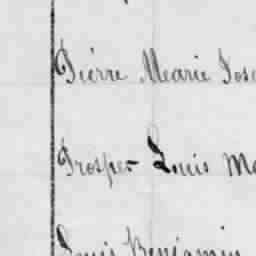 Pierre Mearie Jose
Prosper Louis Ma
Louis Benjamin